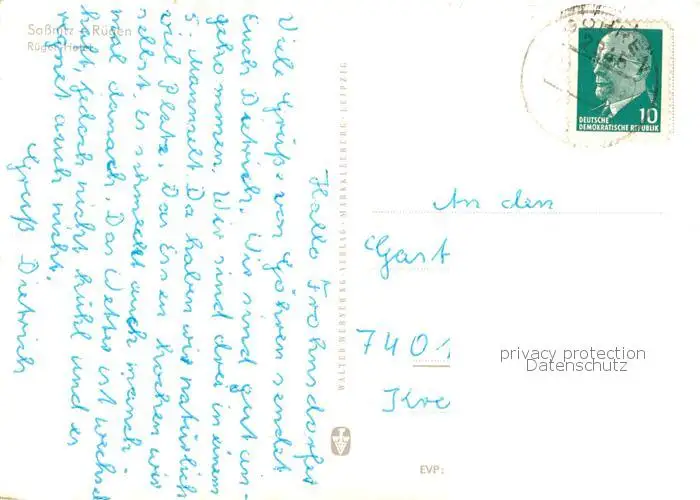 Saßnitz a. Rügen
Rügen-Hotel
Hallo Frohnsdorfer
Viele Grüße von Göhren sendet
Euch Dietrich. Wir sind gut an-
gekommen. Wir sind drei in einem
5. Mannzelt. Da haben wir natürlich
viel Platz. Das Essen kochen wir
selbst. Es schmeckt auch manch-
mal danach. Das Wetter ist wechsel
haft, jedoch nicht kühl und es
regnet auch nicht.
Gruß Dietrich
WALTER WERNER KG · VERLAG · MARKKLEEBERG · LEIPZIG
DEUTSCHE
DEMOKRATISCHE REPUBLIK
10
An den
Gast
7401
Kre
privacy protection
Datenschutz
EVP: